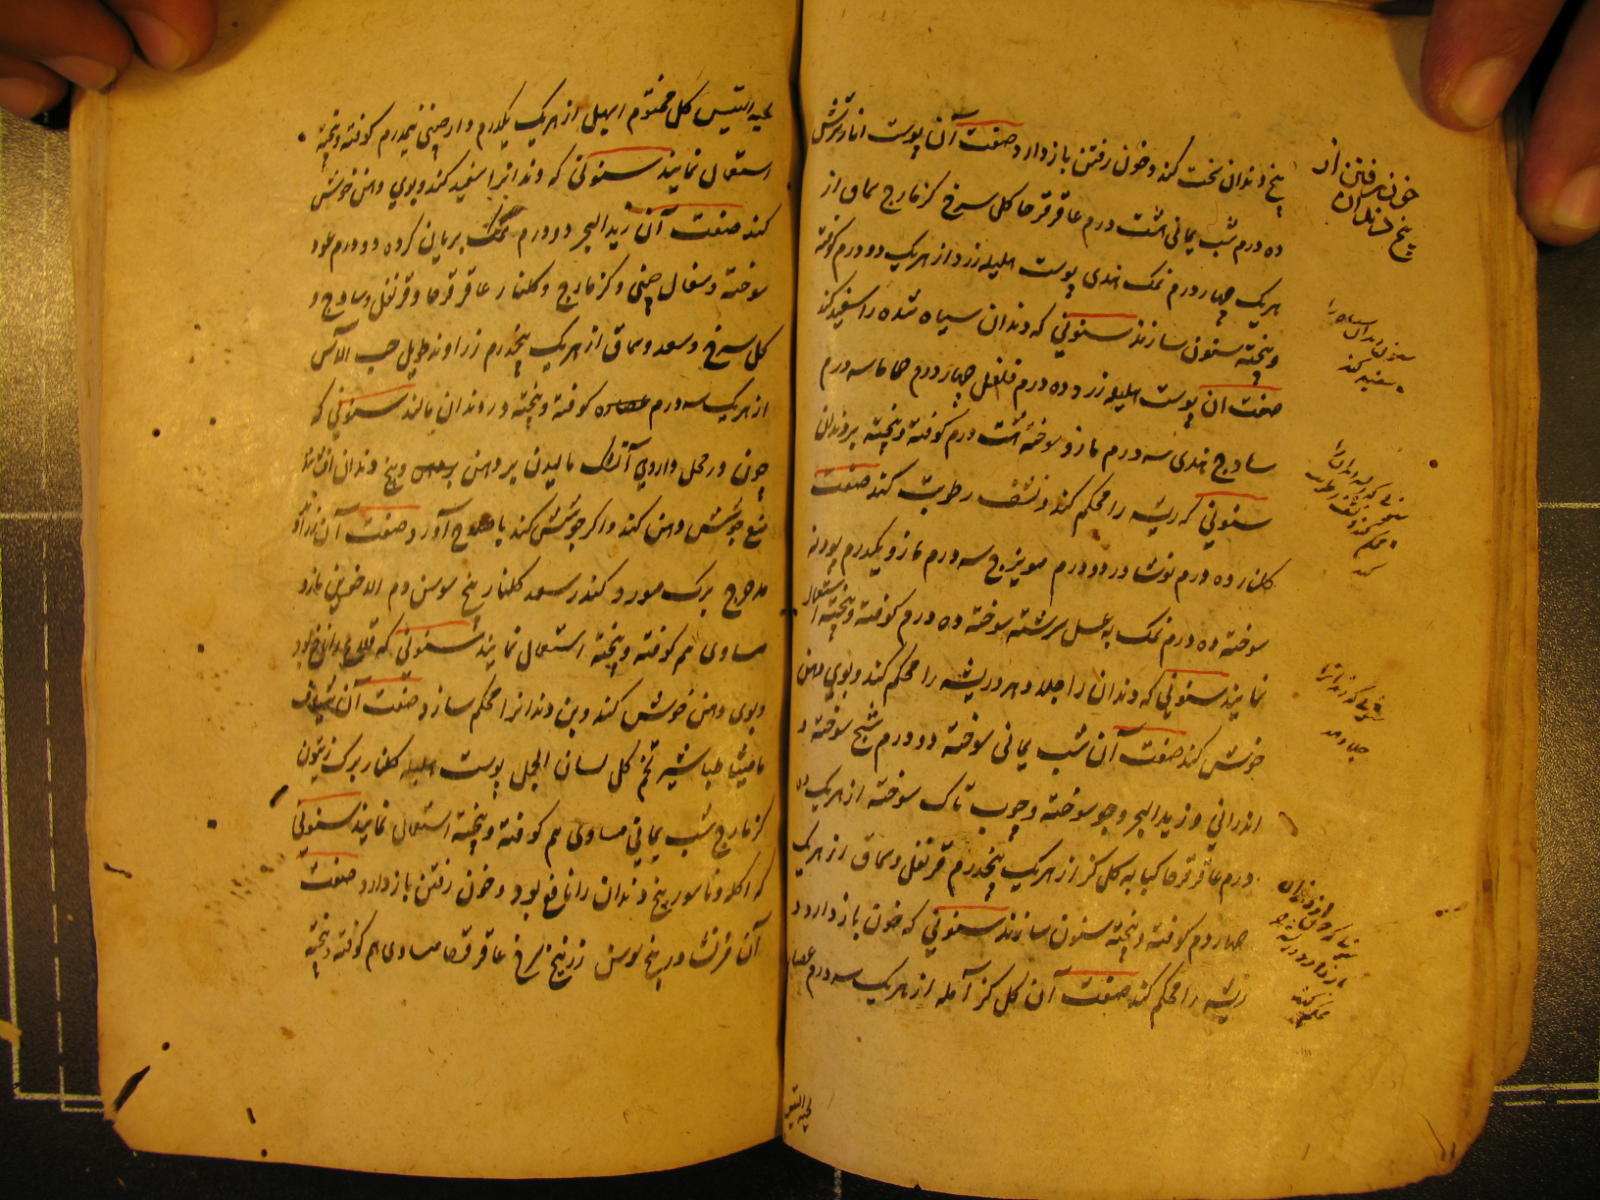 بیخ دندان سخت کند و خون رفتن باز دارد صفت آن پوست انار ترش
ده درم شب یمانی هشت درم عاقرقرحا کل سرخ کزمازج سماق از
هریک چهار درم نمک هندی پوست هلیله زرد از هریک دو درم کوفته
و پیخته سنون سازند سنونی که دندان سیاه شده را سفید کند
صفت آن پوست هلیله زرد ده درم فلفل چهار درم حاما سه درم
سادج هندی سه درم مازو سوخته هشت درم کوفته و پیخته بر دندان
سنونی که ریشه را محکم کند و نشف رطوبت کند صفت
کلنار ده درم نوشادر دو درم مویزج سه درم مازو یکدرم پودنه
سوخته ده درم نمک به عسل سرشته سوخته ده درم کوفته و پیخته استعمال
نمایند سنونی که دندان را جلا دهد و ریشه را محکم کند و بوی دهن
خوش کند صفت آن شب یمانی سوخته دو درم شیح سوخته و
اندرانی و زبد البحر و جو سوخته و چوب تاک سوخته از هریک ده
درم عاقرقرحا کبابه کل کز از هریک پنجدرم قرنفل و سماق از هریک
چهار درم کوفته و پیخته سنون سازند سنونی که خون باز دارد و
ریشه را محکم کند صفت آن کل کز آمله از هریک سه درم عصاره
لحیة التیس
خون رفتن از
بیخ دندان
سنون دندان سیاه را
سفید کند
سنونی که دندان را
جلا دهد
باز دارد و ریشه
محکم کند
لحیة التیس کل مختوم ابهل از هریک یکدرم دارچینی نیمدرم کوفته و پیخته
استعمال نمایند سنونی که دندانرا سفید کند و بوی دهن خوش
کند صفت آن زبد البحر دو درم نمک بریان کرده دو درم عود
سوخته و سفال چینی و کزمازج و کلنار عاقرقرحا و قرنفل و سادج و
کل سرخ و سعد و سماق از هریک پنجدرم زراوند طویل حب الآس
از هریک سه درم کوفته و پیخته در دندان مالند سنونی که
چون در محل داروی مالیدن بر دهن و بیخ دندان
منع جوشش دهن کند و اکر جوشش کند باصلاح آورد صفت آن زراوند
مدحرج برک مورد کندر سعد کلنار بیخ سوسن دم الاخوین مازو
مساوی هم کوفته و پیخته استعمال نمایند سنونی که قلاع
و بوی دهن خوش کند و بن دندانرا محکم سازد صفت آن شیاف
مامیثا طباشیر تخم کل لسان الحمل پوست هلیله کلنار برک زیتون
کزمازج شب یمانی مساوی هم کوفته و پیخته استعمال نمایند سنونی
که اکله و ناسور بیخ دندان را نافع بود و خون رفتن باز دارد صفت
آن بیخ سوسن زرنیخ سرخ عاقرقرحا مساوی هم کوفته و پیخته